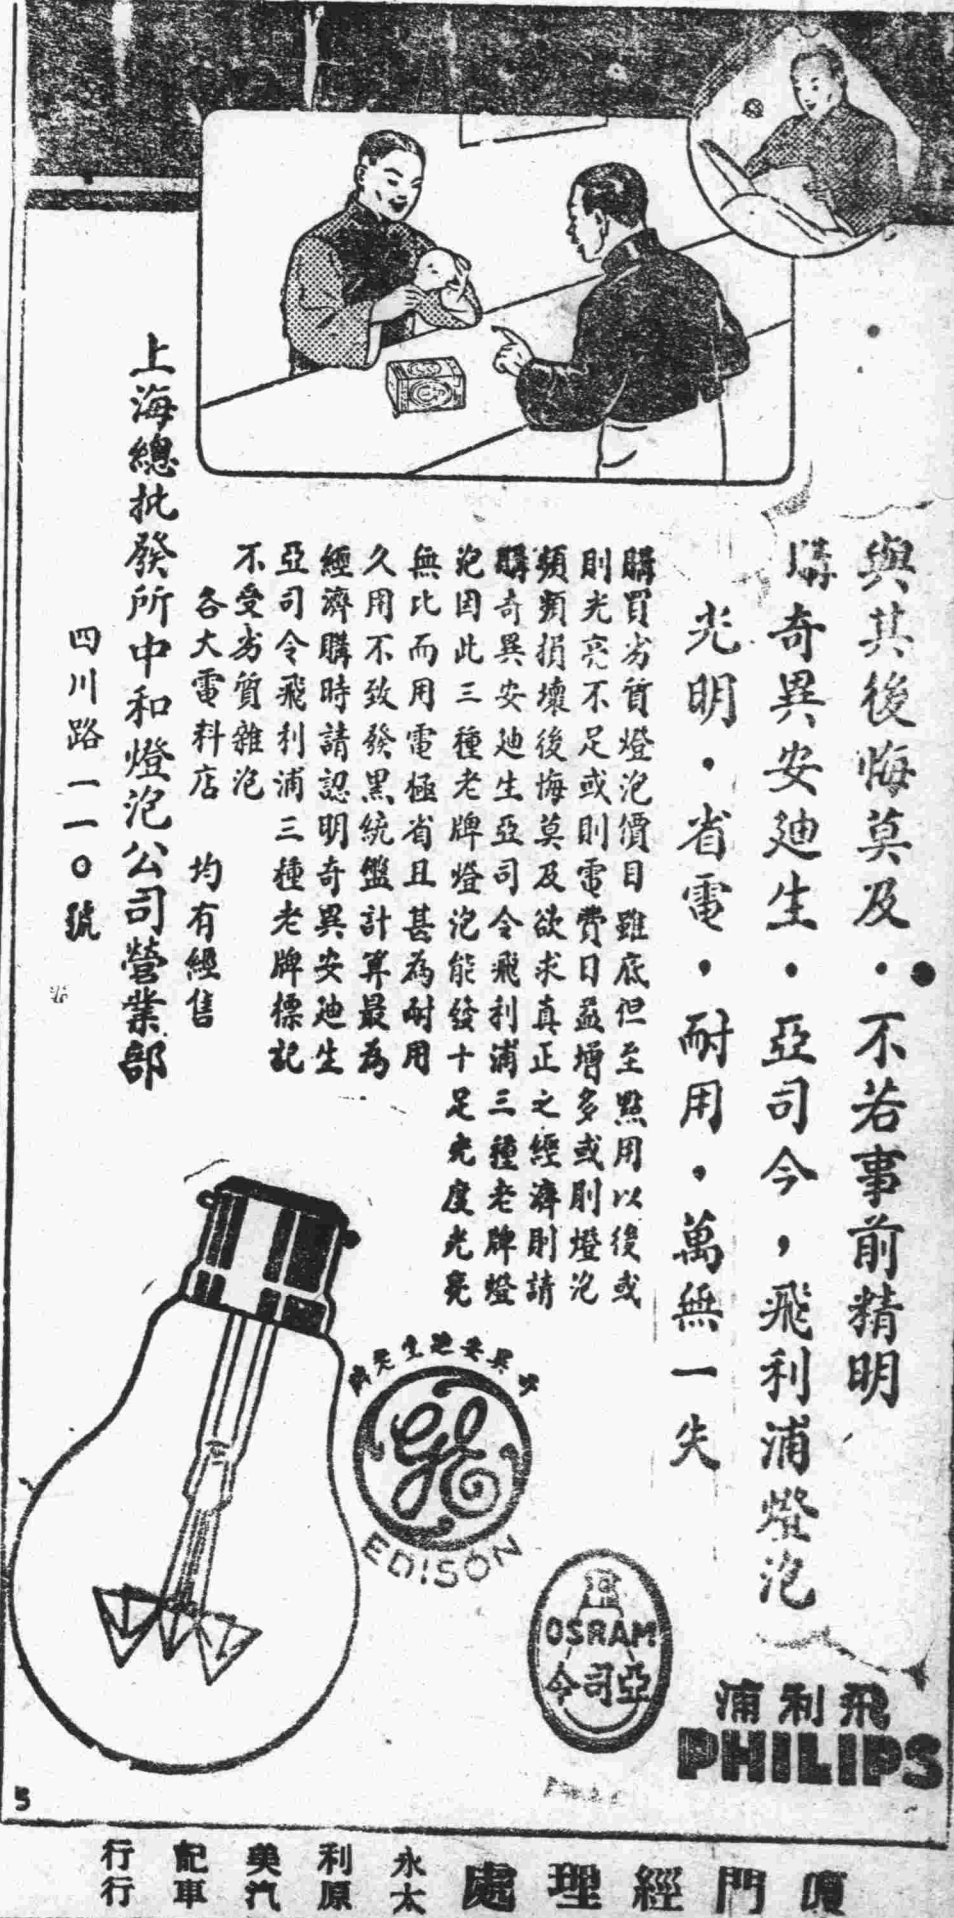 與其後悔莫及・不若事前精明
購奇異安廸生・亞司令，飛利浦燈泡
光明・省電，耐用，萬無一失
購買劣質燈泡價目雖底但至點用以後或
則光亮不足或則電費日益增多或則燈泡
頻頻損壞後悔莫及欲求真正之經濟則請
購奇異安廸生亞司令飛利浦三種老牌燈
泡因此三種老牌燈泡能發十足光度光亮
無比而用電極省且甚為耐用
久用不致發黑統盤計算最為
經濟購時請認明奇異安廸生
亞司令飛利浦三種老牌標記
不受劣質雜泡
各大電料店 均有經售
上海總批發所中和燈泡公司營業部
四川路一一〇號
GE
EDISON
OSRAM
亞司令
飛利浦
PHILIPS
5
廈門經理處
永太
利原
美汽
記車
行行